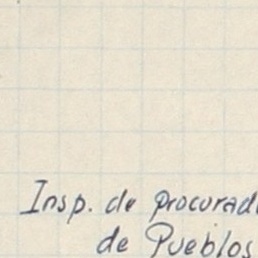 Insp. de procurad
de Pueblos